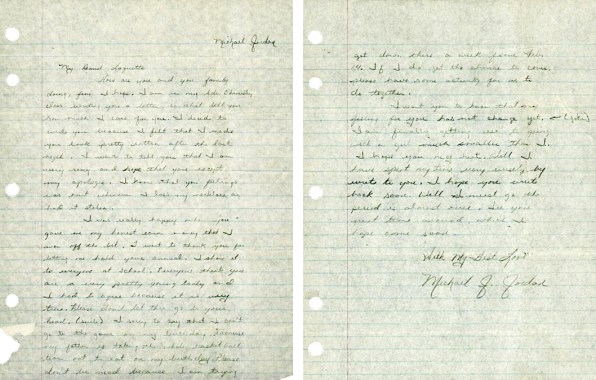 Michael Jordan
My Dearest Laquetta
How are you and your family
doing, fine I hope. I am in my Adv. Chemistry
class writing you a letter, so what tell you
how much I care for you. I decide to
write you because I felt that I made
you look pretty rotten after the last
night. I want to tell you that I am
very sorry and hope that you except
my apology. I know that you feelings
was hurt whenever I lost my necklace or
had it stolen.
I was really happy when you
gave me my honest coin money that I
won off the bet. I want to thank you for
letting me hold your annual. I show it
to everyone at school. Everyone think you
are a very pretty young lady and
I had to agree because it is very
true. Please don't let this go to your
head. (smile) I sorry to say that I can't
go to the game on my birthday because
my father is taking the whole basketball
team out to eat on my birthday. Please
don't be mad because I am trying
get down there a week from Feb.
14. If I do get the chance to come,
please have some activity for us to
do together.
I want you to know that my
feeling for you has not change yet. (joke)
I am finally getting use to going
with a girl much smaller than I.
I hope you my best. Well I
have spent my time very wisely by
write to you. I hope you write
back soon. Well I must go the
period is almost over. See you
next time around which I
hope come soon.
With My Best Love
Michael J. Jordan